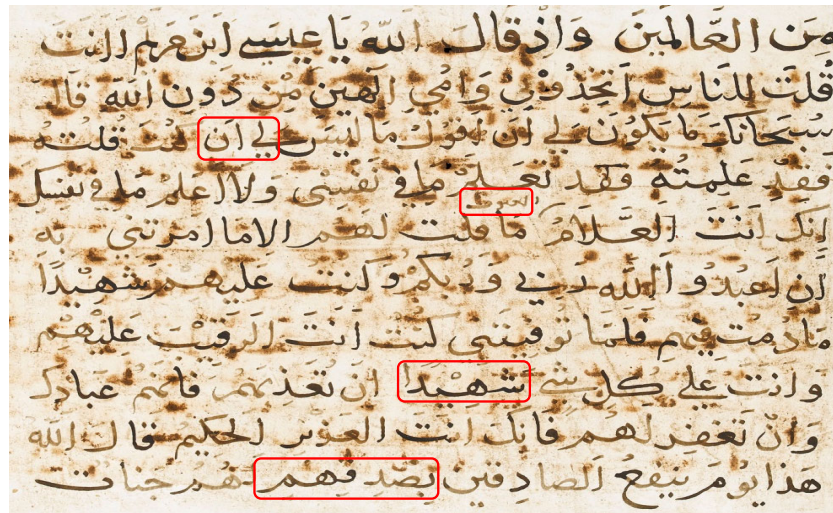 من العالمين واذ قال الله يا عيسى ابن مريم اانت
قلت للناس اتخذوني وامي الهين من دون الله قال
سبحانك ما يكون لي ان اقول ما ليس لي ان كنت قلته
فقد علمته فقد تعلم ما في نفسي ولا اعلم ما في نفسك
انك انت العلام ما قلت لهم الا ما امرتني به
ان اعبدوا الله ربي وربكم وكنت عليهم شهيدا
ما دمت فيهم فلما توفيتني كنت انت الرقيب عليهم
وانت على كل شي شهيدا ان تعذبهم فانهم عبادك
وان تغفر لهم فانك انت العزيز الحكيم قال الله
هذا يوم ينفع الصادقين بصدقهم لهم جنات